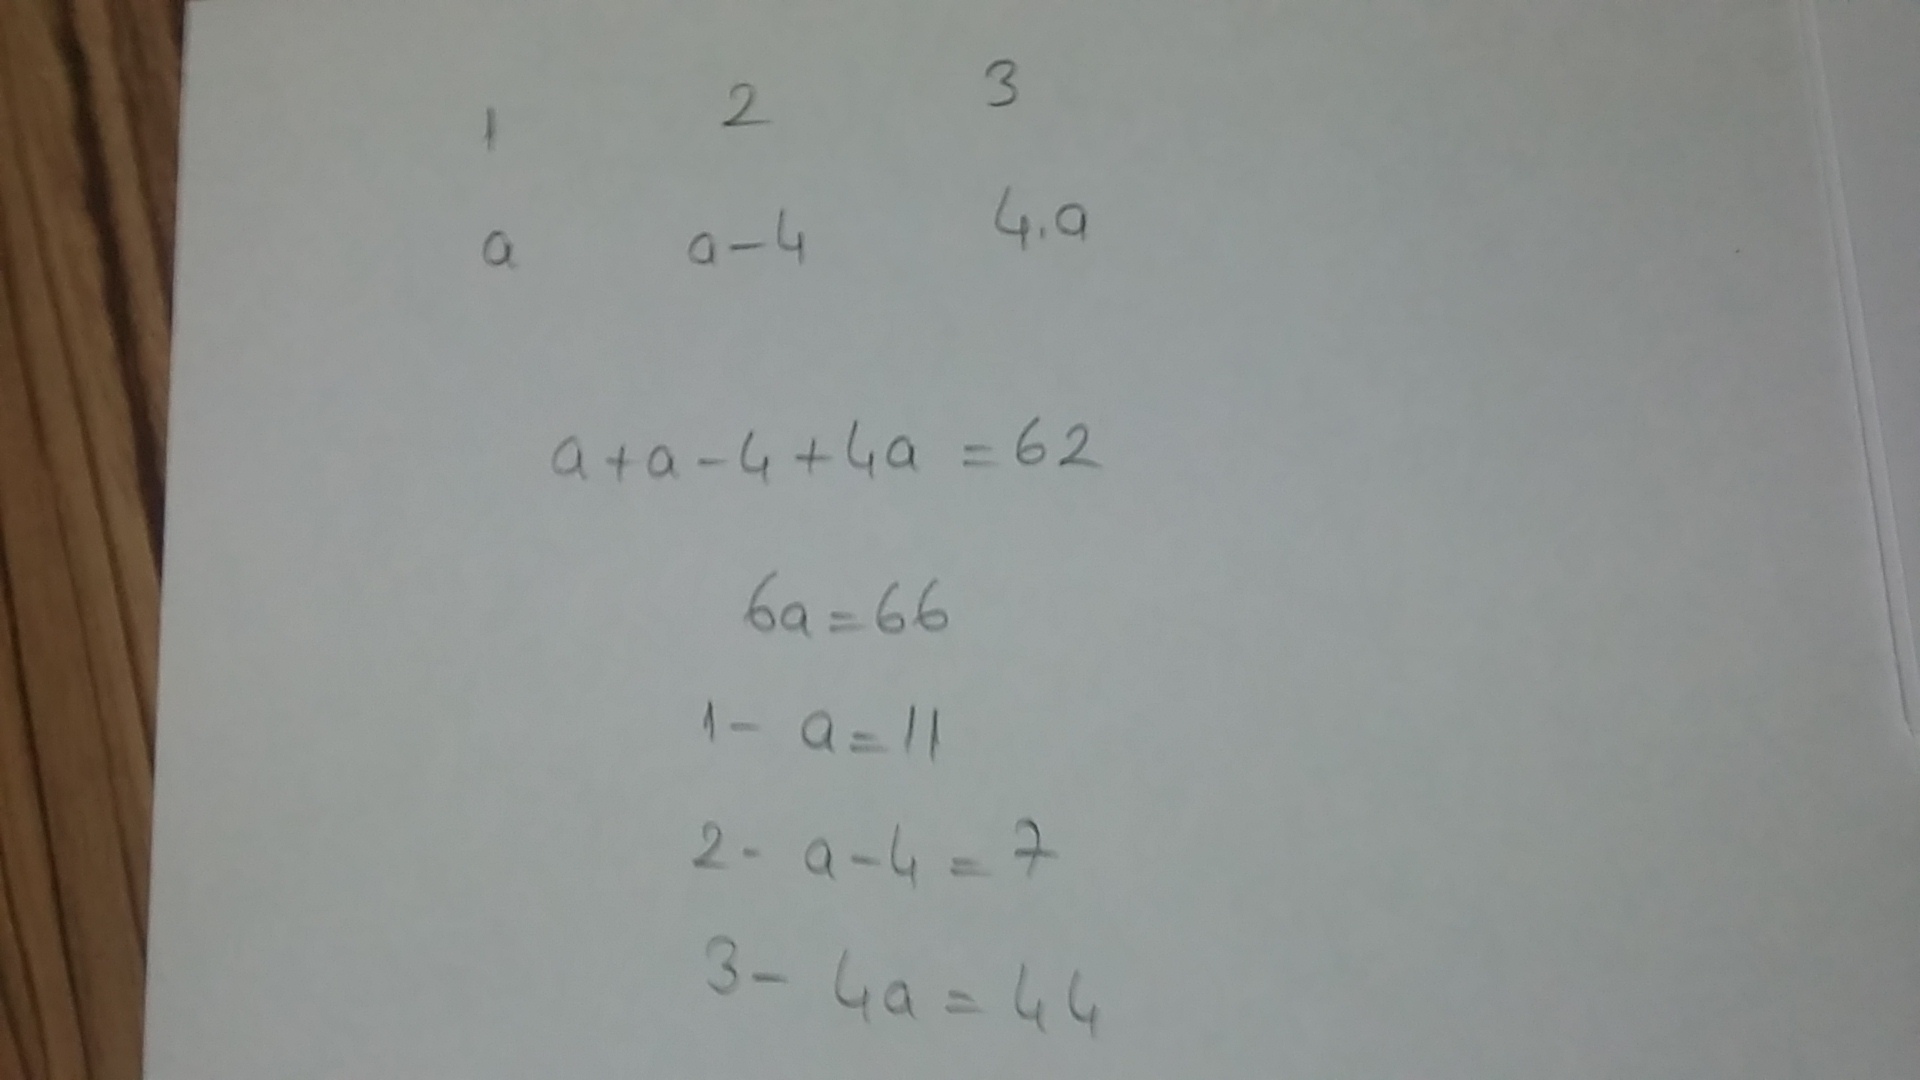 1 2 3
a a-4 4.a
a+a-4+4a = 62
6a=66
1- a=11
2- a-4=7
3- 4a=44